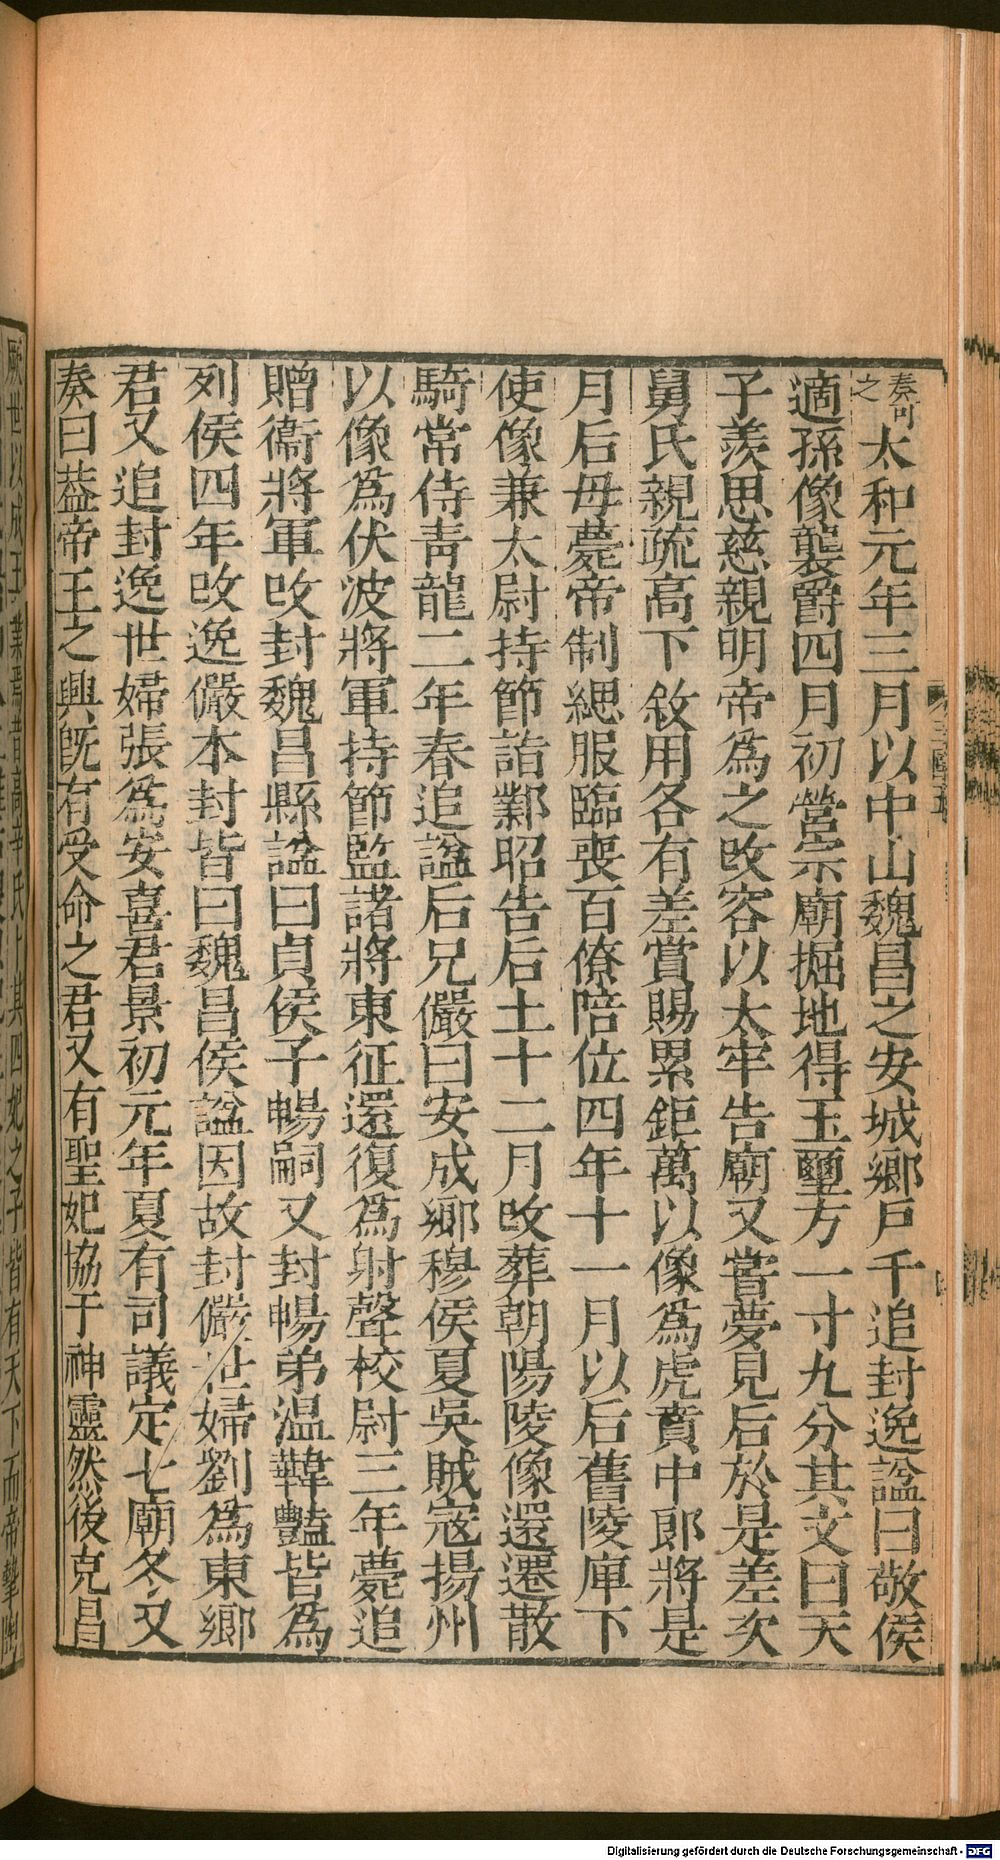 奏可之太和元年三月以中山魏昌之安城鄉戶千追封逸諡曰敬侯
適孫像襲爵四月初營宗廟掘地得玉璽方一寸九分其文曰天
子羨思慈親明帝爲之改容以太牢告廟又嘗夢見后於是差次
舅氏親疏高下敘用各有差賞賜累鉅萬以像爲虎賁中郎將是
月后母薨帝制緦服臨喪百僚陪位四年十一月以后舊陵庳下
使像兼太尉持節詣鄴昭告后土十二月改葬朝陽陵像還遷散
騎常侍青龍二年春追諡后兄儼曰安成鄉穆侯夏吳賊寇揚州
以像爲伏波將軍持節監諸將東征還復爲射聲校尉三年薨追
贈衞將軍改封魏昌縣諡曰貞侯子暢嗣又封暢弟温韡豔皆爲
列侯四年改逸儼本封皆曰魏昌侯諡因故封儼世婦劉爲東鄉
君又追封逸世婦張爲安喜君景初元年夏有司議定七廟冬又
奏曰葢帝王之興旣有受命之君又有聖妃協于神靈然後克昌
厥世以成王業焉昔高辛氏卜其四妃之子皆有天下而帝摯
Digitalisierung gefördert durch die Deutsche Forschungsgemeinschaft - DFG